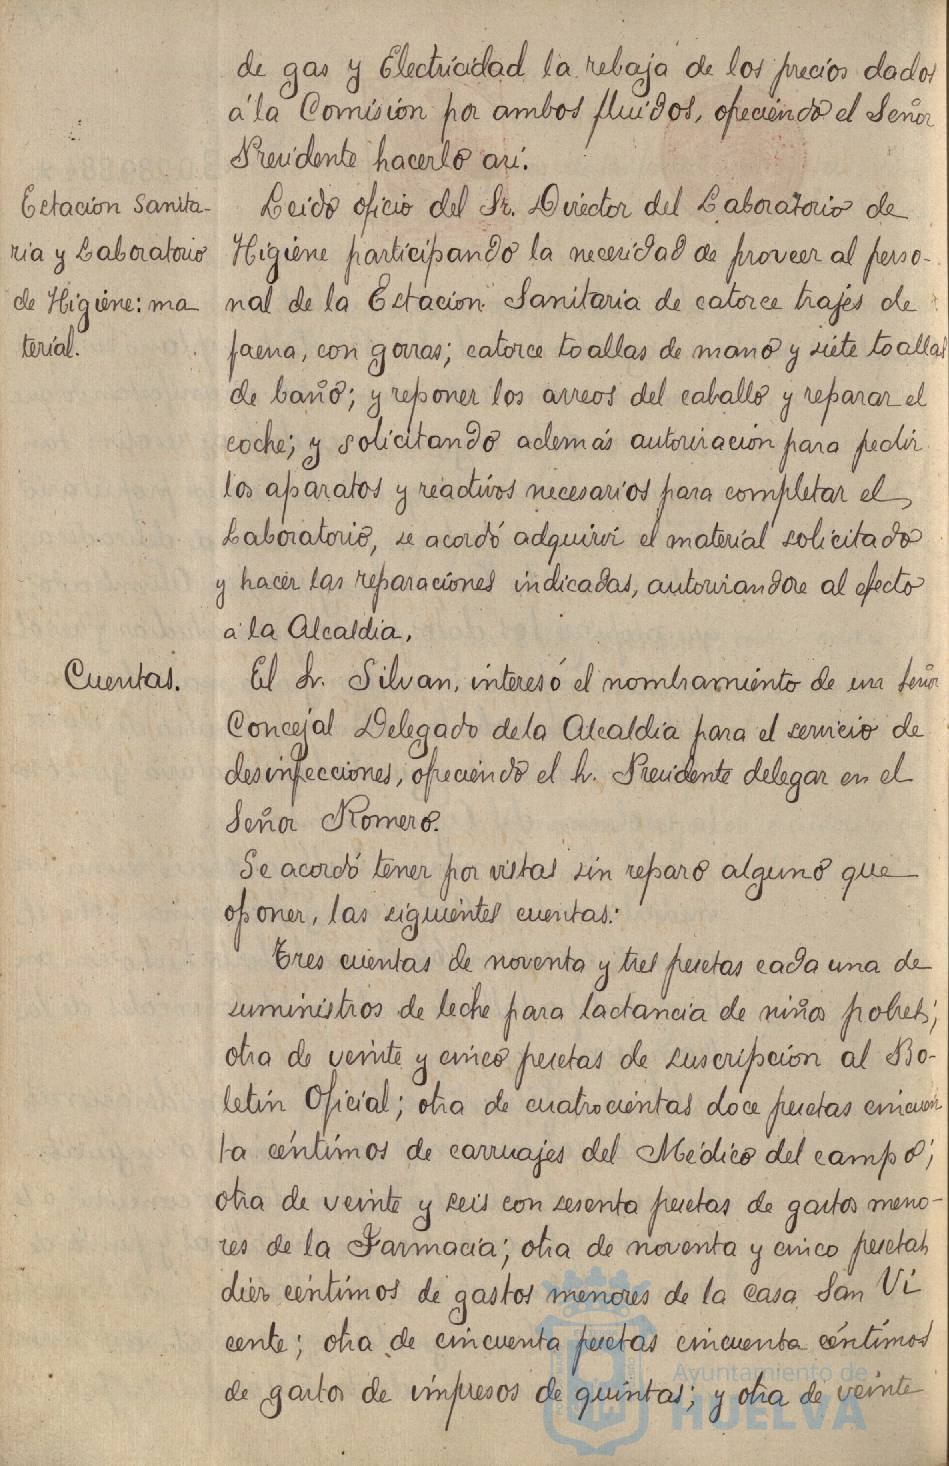 de gas y Electricidad la rebaja de los precios dados
á la Comisión por ambos fluidos, ofreciendo el Señor
Presidente hacerlo así.
Estación Sanita-
ria y Laboratorio
de Higiene: ma
terial.
Leido oficio del Sr. Director del Laboratorio de
Higiene participando la necesidad de proveer al perso-
nal de la Estación Sanitaria de catorce trajes de
faena, con gorras; catorce toallas de mano y siete toallas
de baño; y reponer los arreos del caballo y reparar el
coche; y solicitando además autorización para pedir
los aparatos y reactivos necesarios para completar el
Laboratorio, se acordó adquirir el material solicitado
y hacer las reparaciones indicadas, autorizandose al efecto
a la Alcaldia.
Cuentas.
El Sr. Silvan, interesó el nombramiento de un Señor
Concejal Delegado de la Alcaldia para el servicio de
desinfecciones, ofreciendo el Sr. Presidente delegar en el
Señor Romero.
Se acordó tener por vistas sin reparo alguno que
oponer, las siguientes cuentas:
Tres cuentas de noventa y tres pesetas cada una de
suministros de leche para lactancia de niños pobres;
otra de veinte y cinco pesetas de suscripción al Bo-
letín Oficial; otra de cuatrocientas doce pesetas cincuen
ta céntimos de carruajes del Médico del campo;
otra de veinte y seis con sesenta pesetas de gastos meno-
res de la Farmacia; otra de noventa y cinco pesetas
diez céntimos de gastos menores de la casa San Vi
cente; otra de cincuenta pesetas cincuenta céntimos
de gastos de impresos de quintas; y otra de veinte
Ayuntamiento de
HUELVA